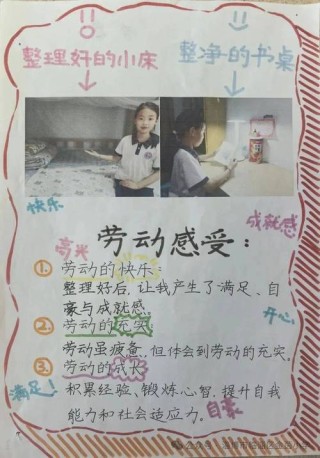 整理好的小床
整净的书桌
快乐
成就感
劳动感受：
1. 劳动的快乐：
整理好后，让我产生了满足、自
豪与成就感
2. 劳动的充实
开心
劳动虽疲惫，但体会到劳动的充实。
3. 劳动的成长
满足！
积累经验、锻炼心智，提升自我
能力和社会适应力。
自豪
公众号